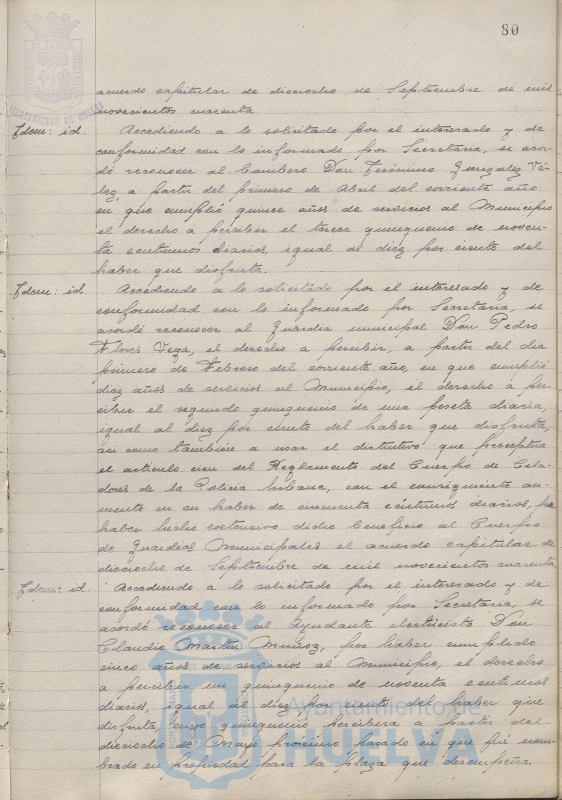 80
AYUNTAMIENTO DE HUELVA
acuerdo capitular de dieciocho de Septiembre de mil
novecientos cuarenta.
Idem: id.
Accediendo a lo solicitado por el interesado y de
conformidad con lo informado por Secretaría, se acor-
dó reconocer al bombero Don Jerónimo Gonzalez Vé-
lez a partir del primero de Abril del corriente año
en que cumplió quince años de servicios al Municipio
el derecho a percibir el tercer quinquenio de noven-
ta centimos diarios, igual al diez por ciento del
haber que disfruta.
Idem: id.
Accediendo a lo solicitado por el interesado y de
conformidad con lo informado por Secretaría, se
acordó reconocer al Guardia municipal Don Pedro
Flores Vega, el derecho a percibir, a partir del dia
primero de Febrero del corriente año, en que cumplió
diez años de servicios al Municipio, el derecho a per-
cibir el segundo quinquenio de una peseta diaria,
igual al diez por ciento del haber que disfruta,
asi como tambien a usar el distintivo que preceptua
el articulo cien del Reglamento del Cuerpo de Cela-
dores de la Policia Urbana, con el consiguiente au-
mento en su haber de cincuenta céntimos diarios, por
haber hecho extensivo dicho beneficio al Cuerpo
de Guardias Municipales el acuerdo capitular de
dieciocho de Septiembre de mil novecientos cuarenta.
Idem: id.
Accediendo a lo solicitado por el interesado y de
conformidad con lo informado por Secretaria, se
acordó reconocer al Ayudante electricista Don
Claudio Martin Muñoz, por haber cumplido
cinco años de servicios al Municipio, el derecho
a percibir un quinquenio de noventa centimos
diarios, igual al diez por ciento del haber que
disfruta, cuyo quinquenio percibirá a partir del
dieciocho de Mayo próximo pasado en que fué nom-
brado en propiedad para la plaza que desempeña.
Ayuntamiento de
HUELVA